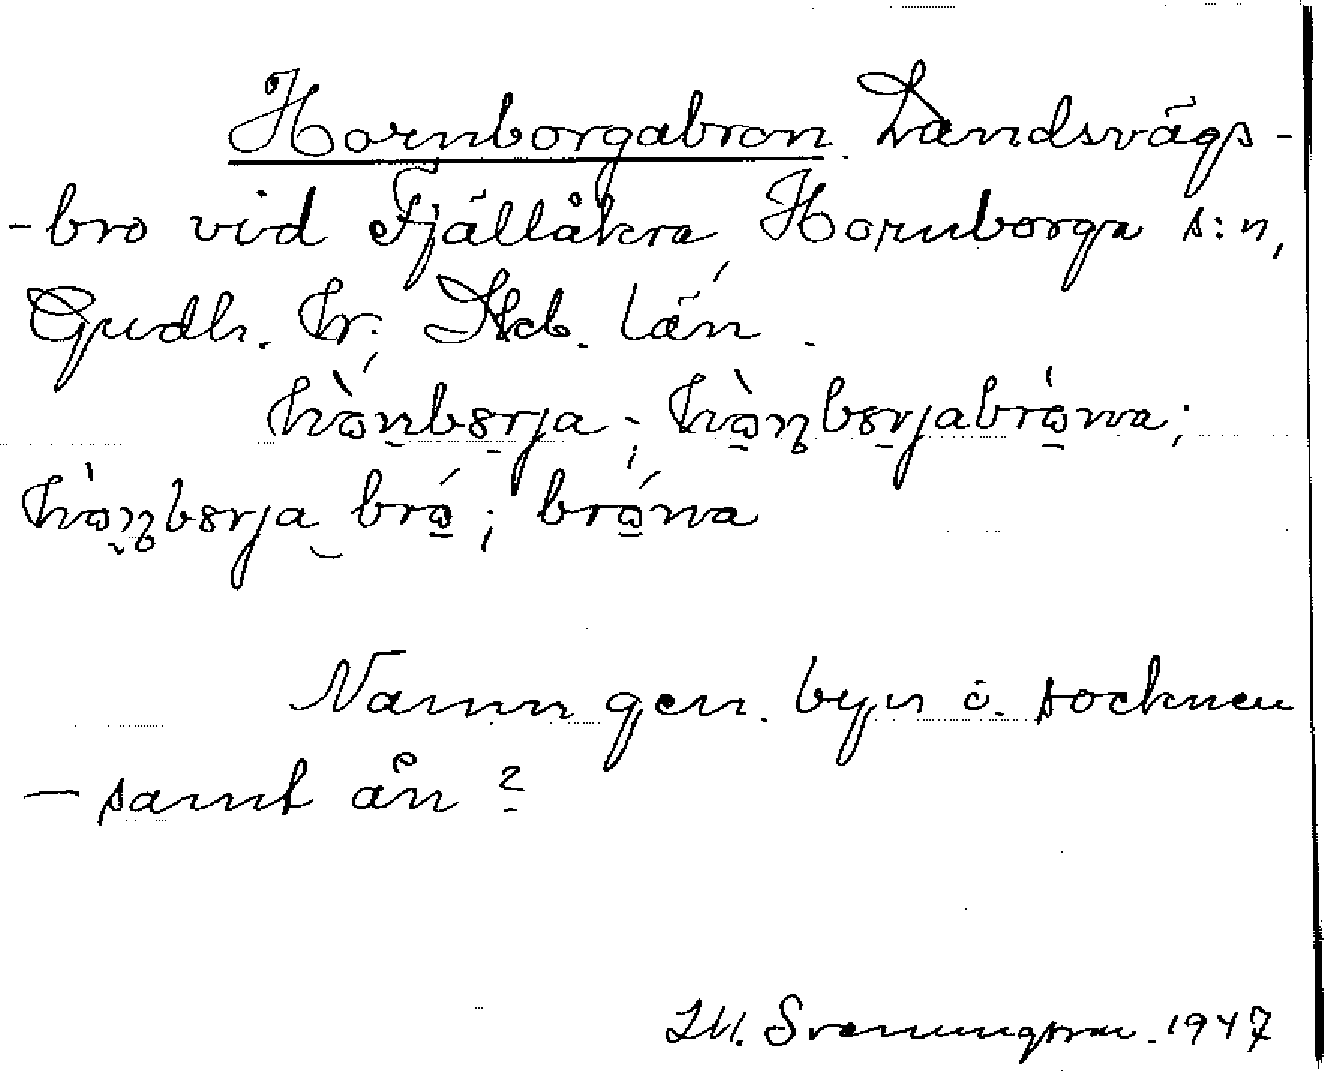 Hornborgabron. Landsvägs-
-bro vid Fjällåkra, Hornborga s:n,
Gudh. hr; Skb. län.
hò̱ṉbɞrja; hò̱ɳbɞrjabrò̱na;
hò̱ɳbɞrja bró̱; bró̱na
Namn gen. byn o. socknen
– samt ån?
Svenungsson. 1947